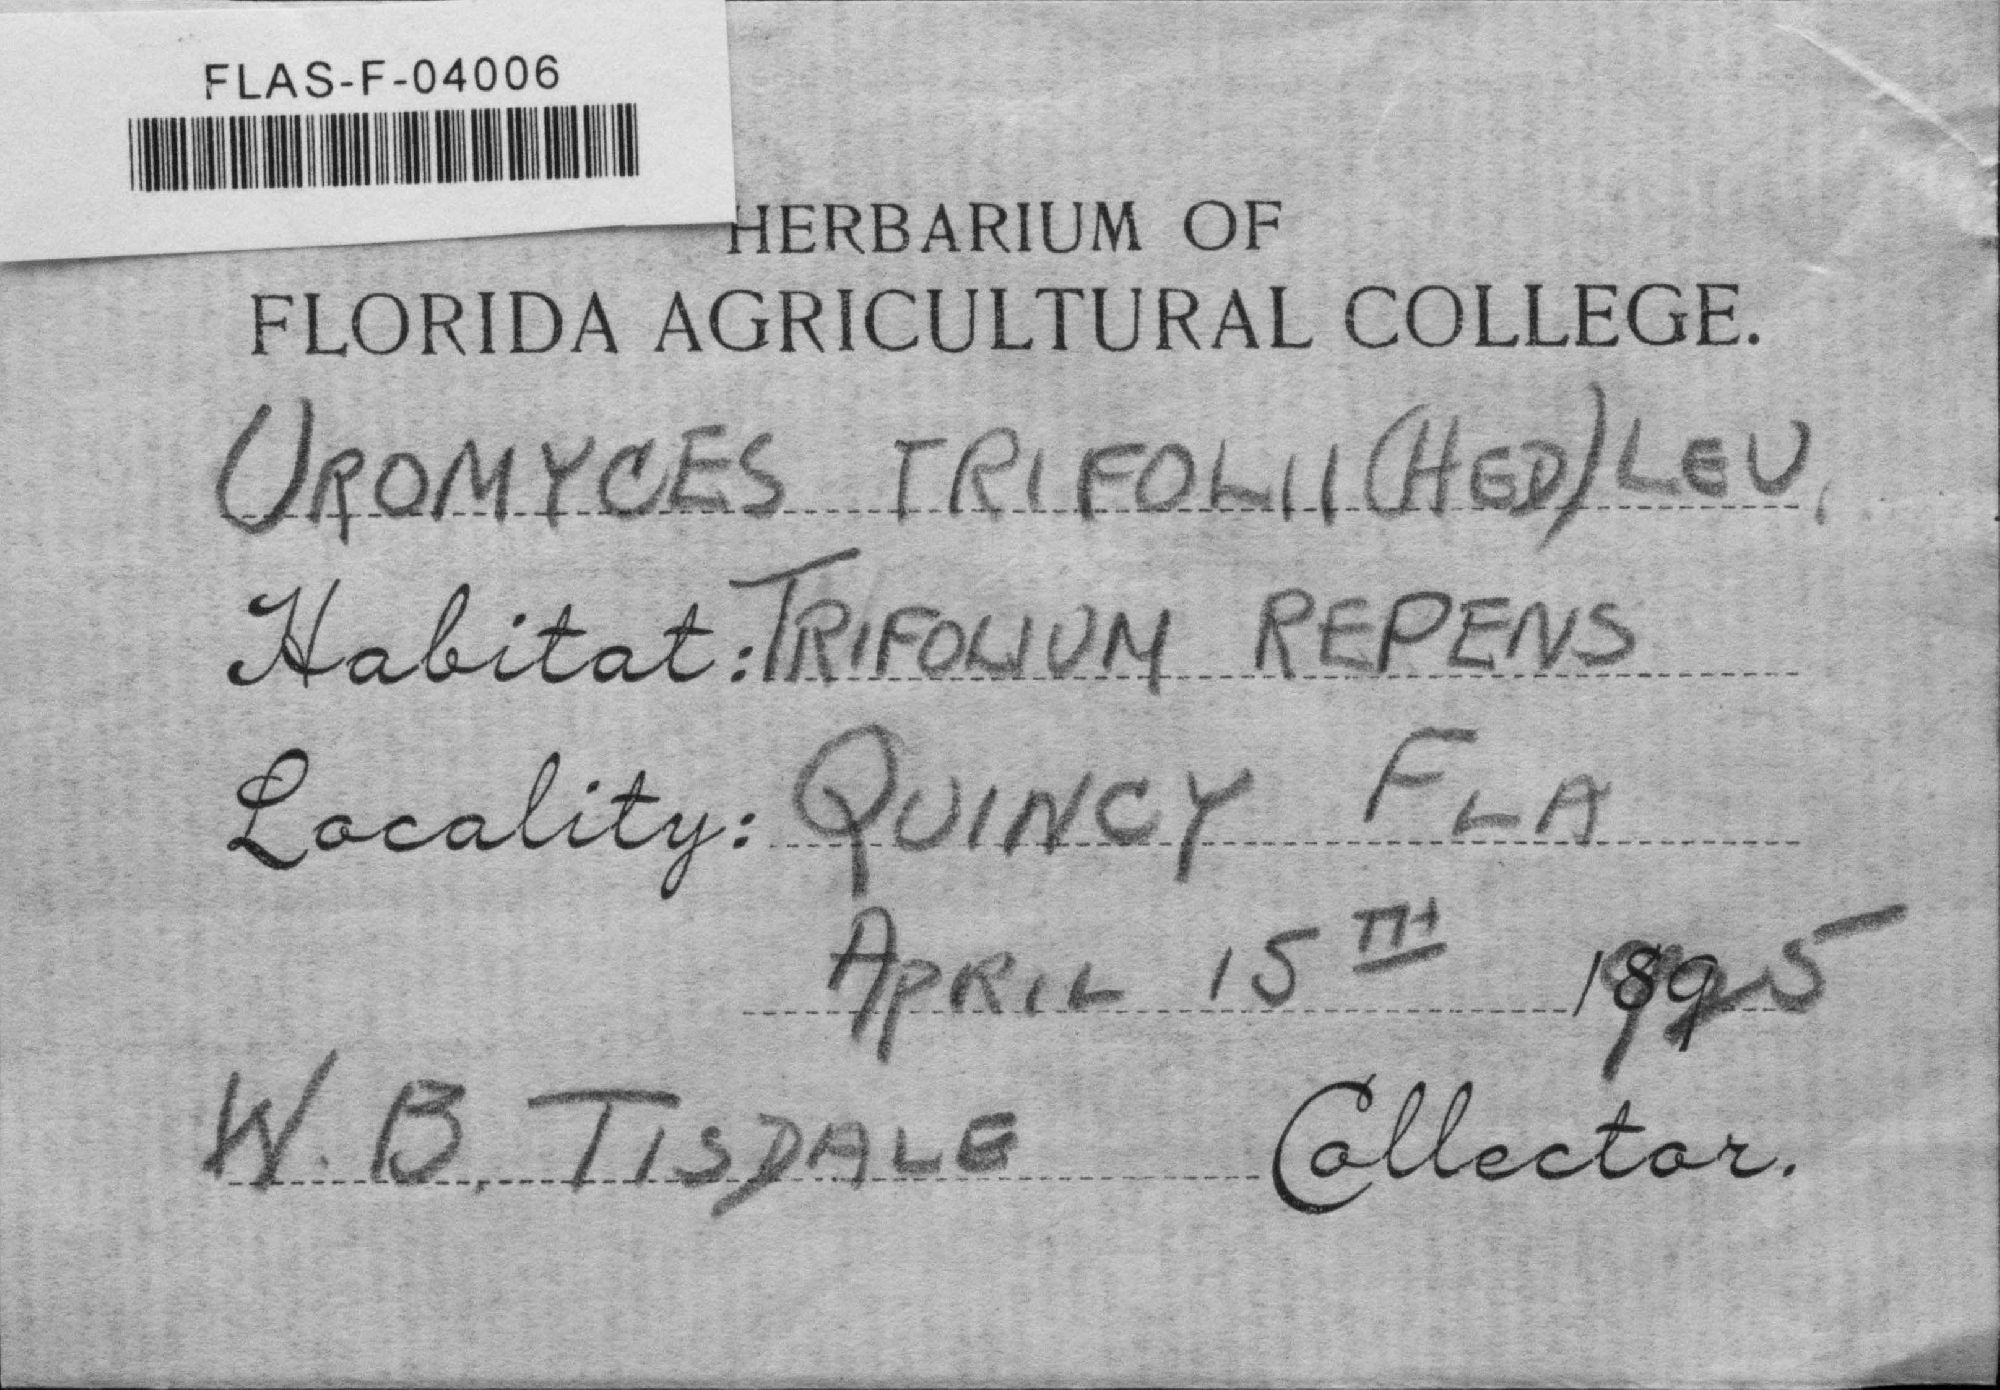 FLAS-F-04006
HERBARIUM OF
FLORIDA AGRICULTURAL COLLEGE.
UROMYCES TRIFOLII (HED) LEV.
Habitat: TRIFOLIUM REPENS
Locality: QUINCY FLA
APRIL 15TH 1925
W. B. TISDALE Collector.